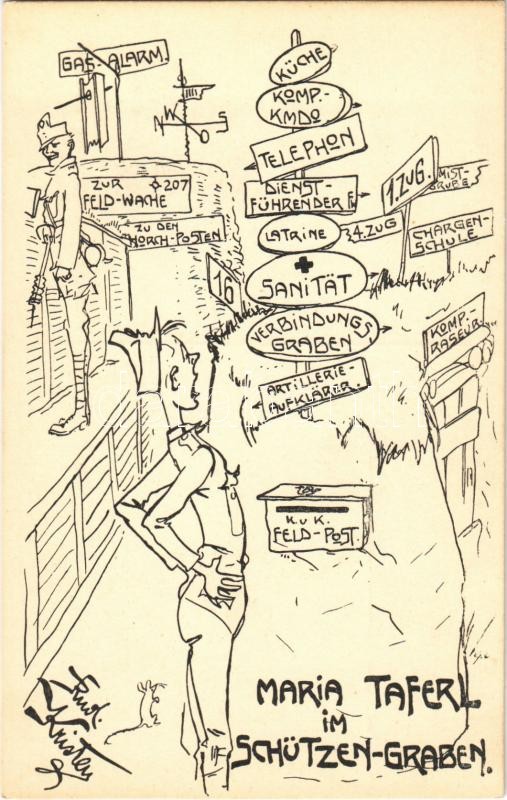 GAS-ALARM.
N
W
O
S
KÜCHE
KOMP.-
KMDO
TELEPHON
DIENST-
FÜHRENDER F.
LATRINE
4. ZUG
1. ZUG.
MIST-
GRUBE
CHARGEN-
SCHULE.
ZUR 207
FELD-WACHE
ZU DEN
HORCH-POSTEN
16
SANITÄT
VERBINDUNGS
GRABEN
KOMP.
RASEUR.
ARTILLERIE-
AUFKLÄRER.
K.u.K.
FELD-POST.
MARIA TAFERL
im
SCHÜTZEN-GRABEN.
Kristen